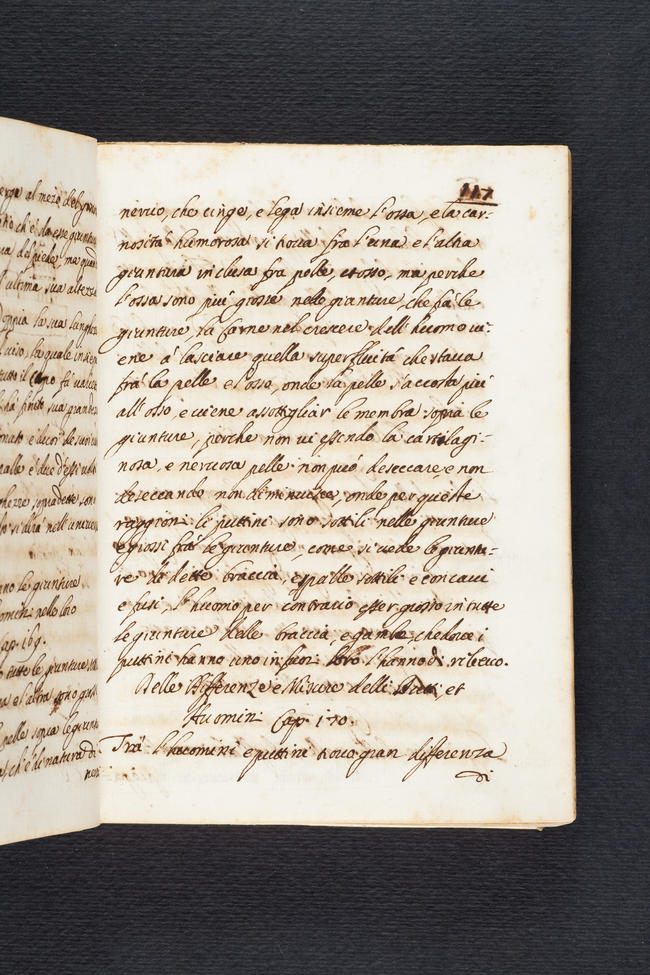 erge al mezo del
la sua
nno le giunture
nelle loro
Cap. 169.
tutte le giunture
e l'altra sono
pelle sopra le giunt
ch'è di natura di
ner
117
nervo, che cinge, e lega insieme l'ossa, e la car-
nosità humorosa si trova fra l'una e l'altra
giuntura inclusa fra pelle et osso, ma perche
l'ossa sono più grosse nelle gianture, che fà le
giunture, la carne nel crescere dell'huomo vi-
ene à lasciare quella superfluità che stava
frà la pelle e l'osso, onde la pelle s'accosta più
all'osso, e viene assottigliar le membra soprà le
giunture, perche non vi essendo la cartilagi-
nosa, e nervosa pelle non può deseccare, e non
deseccando non diminuisce, onde per queste
raggioni li puttini sono sottili nelle giunture
e grossi frà le giunture, come si vede le giuntu-
re da dette braccia, e spalle sottili e concavi
e fusi, l'huomo per contrario esser grosso in tutte
le giunture delle braccia, e gambe, che dove i
puttini hanno uno in fuori loro l'hanno di rilievo.
Delle Differenze e Misure delli Putti, et
Huomini Cap. 170.
Trà l'huomini e puttini trovo gran differenza
di